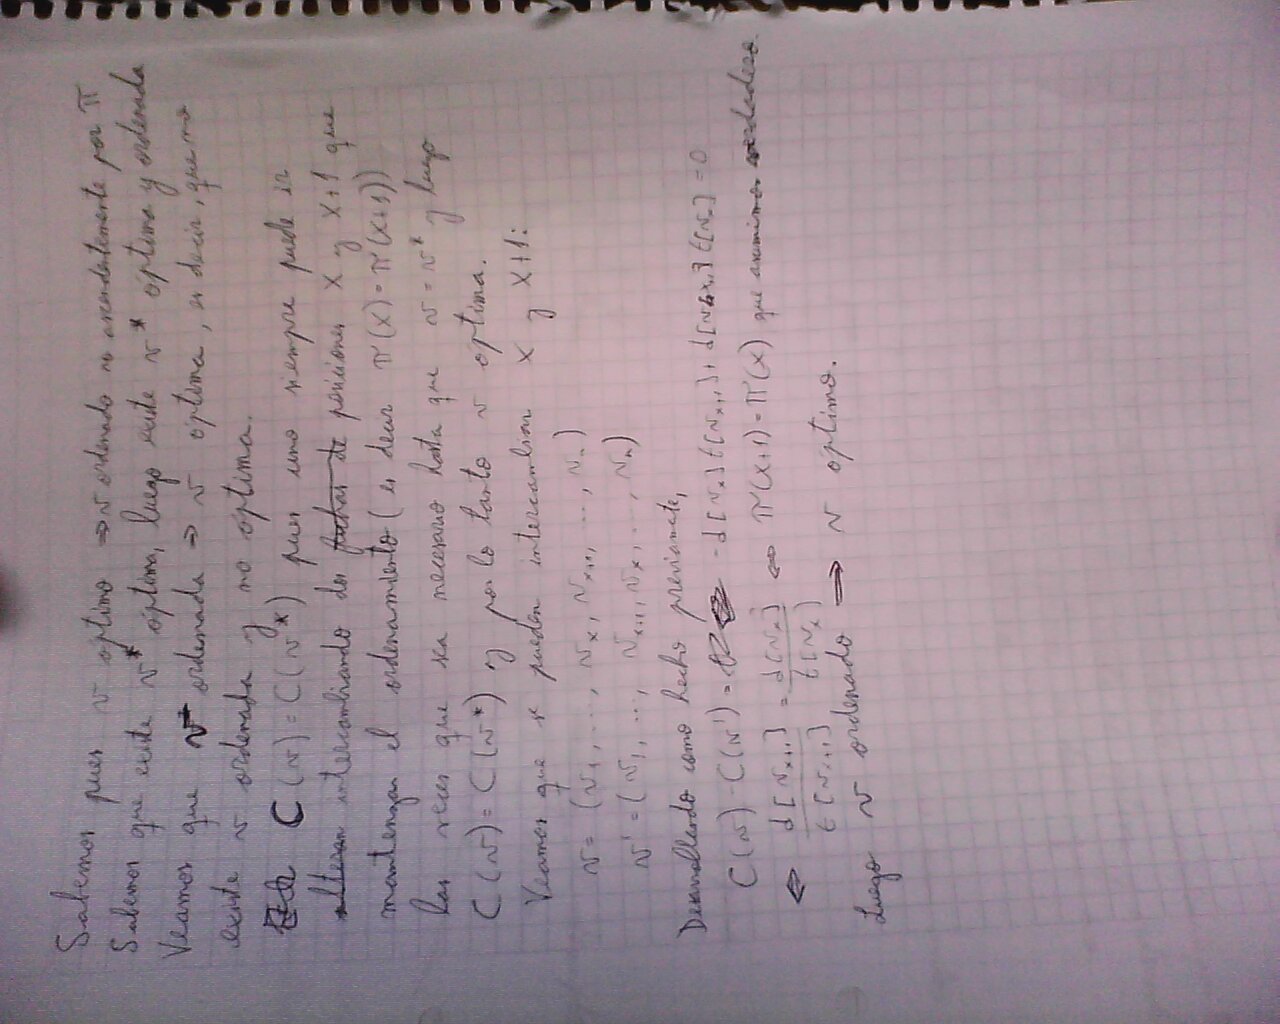 Sabemos pues v optimo ⇒ v ordenado no ascendentemente por π
Sabemos que existe v* optimo, luego existe v* optimo y ordenada
Veamos que v ordenada ⇒ v optima, es decir, que no
existe v ordenada y no optima.
C(v) = C(v*) pues uno siempre puede ir
intercambiando dos posiciones x y x+1 que
mantengan el ordenamiento (es decir π(x) = π(x+1))
las veces que sea necesario hasta que v = v* y luego
C(v) = C(v*) y por lo tanto v optima.
Veamos que se pueden intercambiar x y x+1:
v = (v₁, ..., vₓ, vₓ₊₁, ..., vₙ)
v' = (v₁, ..., vₓ₊₁, vₓ, ..., vₙ)
Desarrollando como hecho previamente,
C(v) - C(v') = - d[vₓ] t[vₓ₊₁] + d[vₓ₊₁] t[vₓ] = 0
⇔ d[vₓ₊₁] / t[vₓ₊₁] = d[vₓ] / t[vₓ] ⇔ π(x+1) = π(x) que asumimos verdadero
Luego v ordenado ⇒ v optimo.